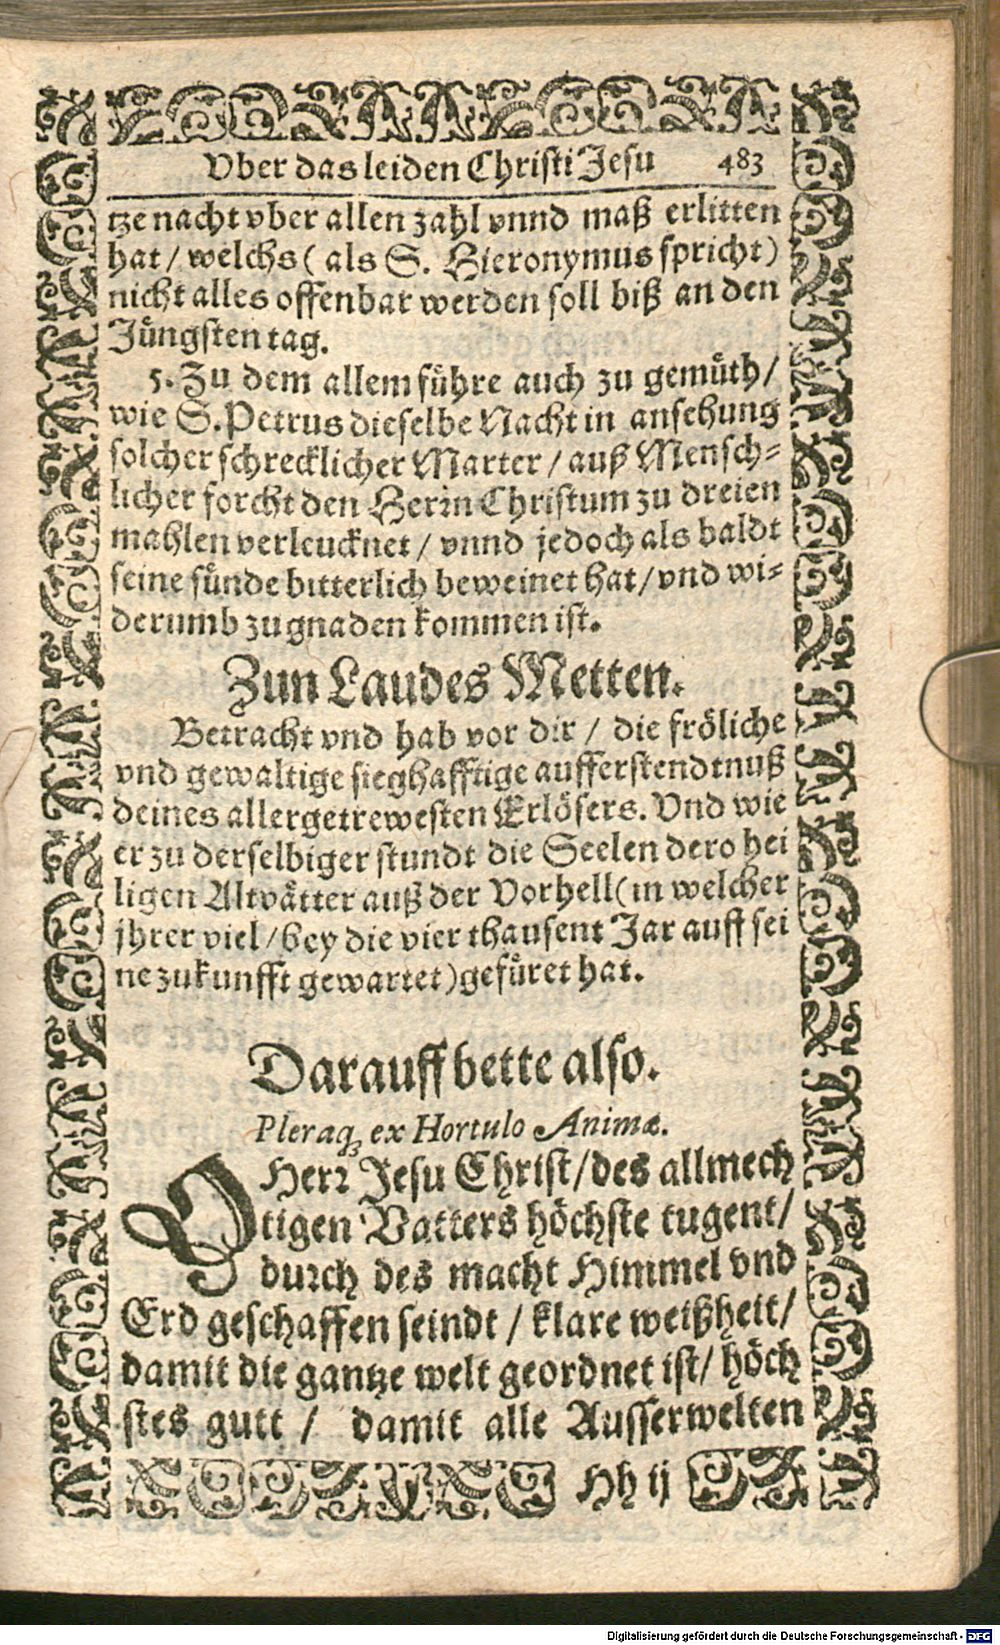 Vber das leiden Christi Jesu 483
tze nacht vber allen zahl vnnd maß erlitten
hat / welchs ( als S. Hieronymus spricht)
nicht alles offenbar werden soll biß an den
Jüngsten tag.
5. Zu dem allem führe auch zu gemüth /
wie S. Petrus dieselbe Nacht in ansehung
solcher schrecklicher Marter / auß Mensch-
licher forcht den Herrn Christum zu dreien
mahlen verleucknet / vnnd jedoch als baldt
seine sünde bitterlich beweinet hat / vnd wi-
derumb zu gnaden kommen ist.
Zun Laudes Metten.
Betracht vnd hab vor dir / die fröliche
vnd gewaltige sieghafftige aufferstendtnuß
deines allergetrewesten Erlösers. Vnd wie
er zu derselbiger stundt die Seelen dero hei
ligen Altvätter auß der Vorhell (in welcher
jhrer viel / bey die vier thausent Jar auff sei
ne zukunfft gewartet) gefüret hat.
Darauff bette also.
Pleraq; ex Hortulo Animæ.
O Herr Jesu Christ / des allmech
tigen Vatters höchste tugent /
durch des macht Himmel vnd
Erd geschaffen seindt / klare weißheit /
damit die gantze welt geordnet ist / höch
stes gutt / damit alle Ausserwelten
Hh ij
Digitalisierung gefördert durch die Deutsche Forschungsgemeinschaft - DFG